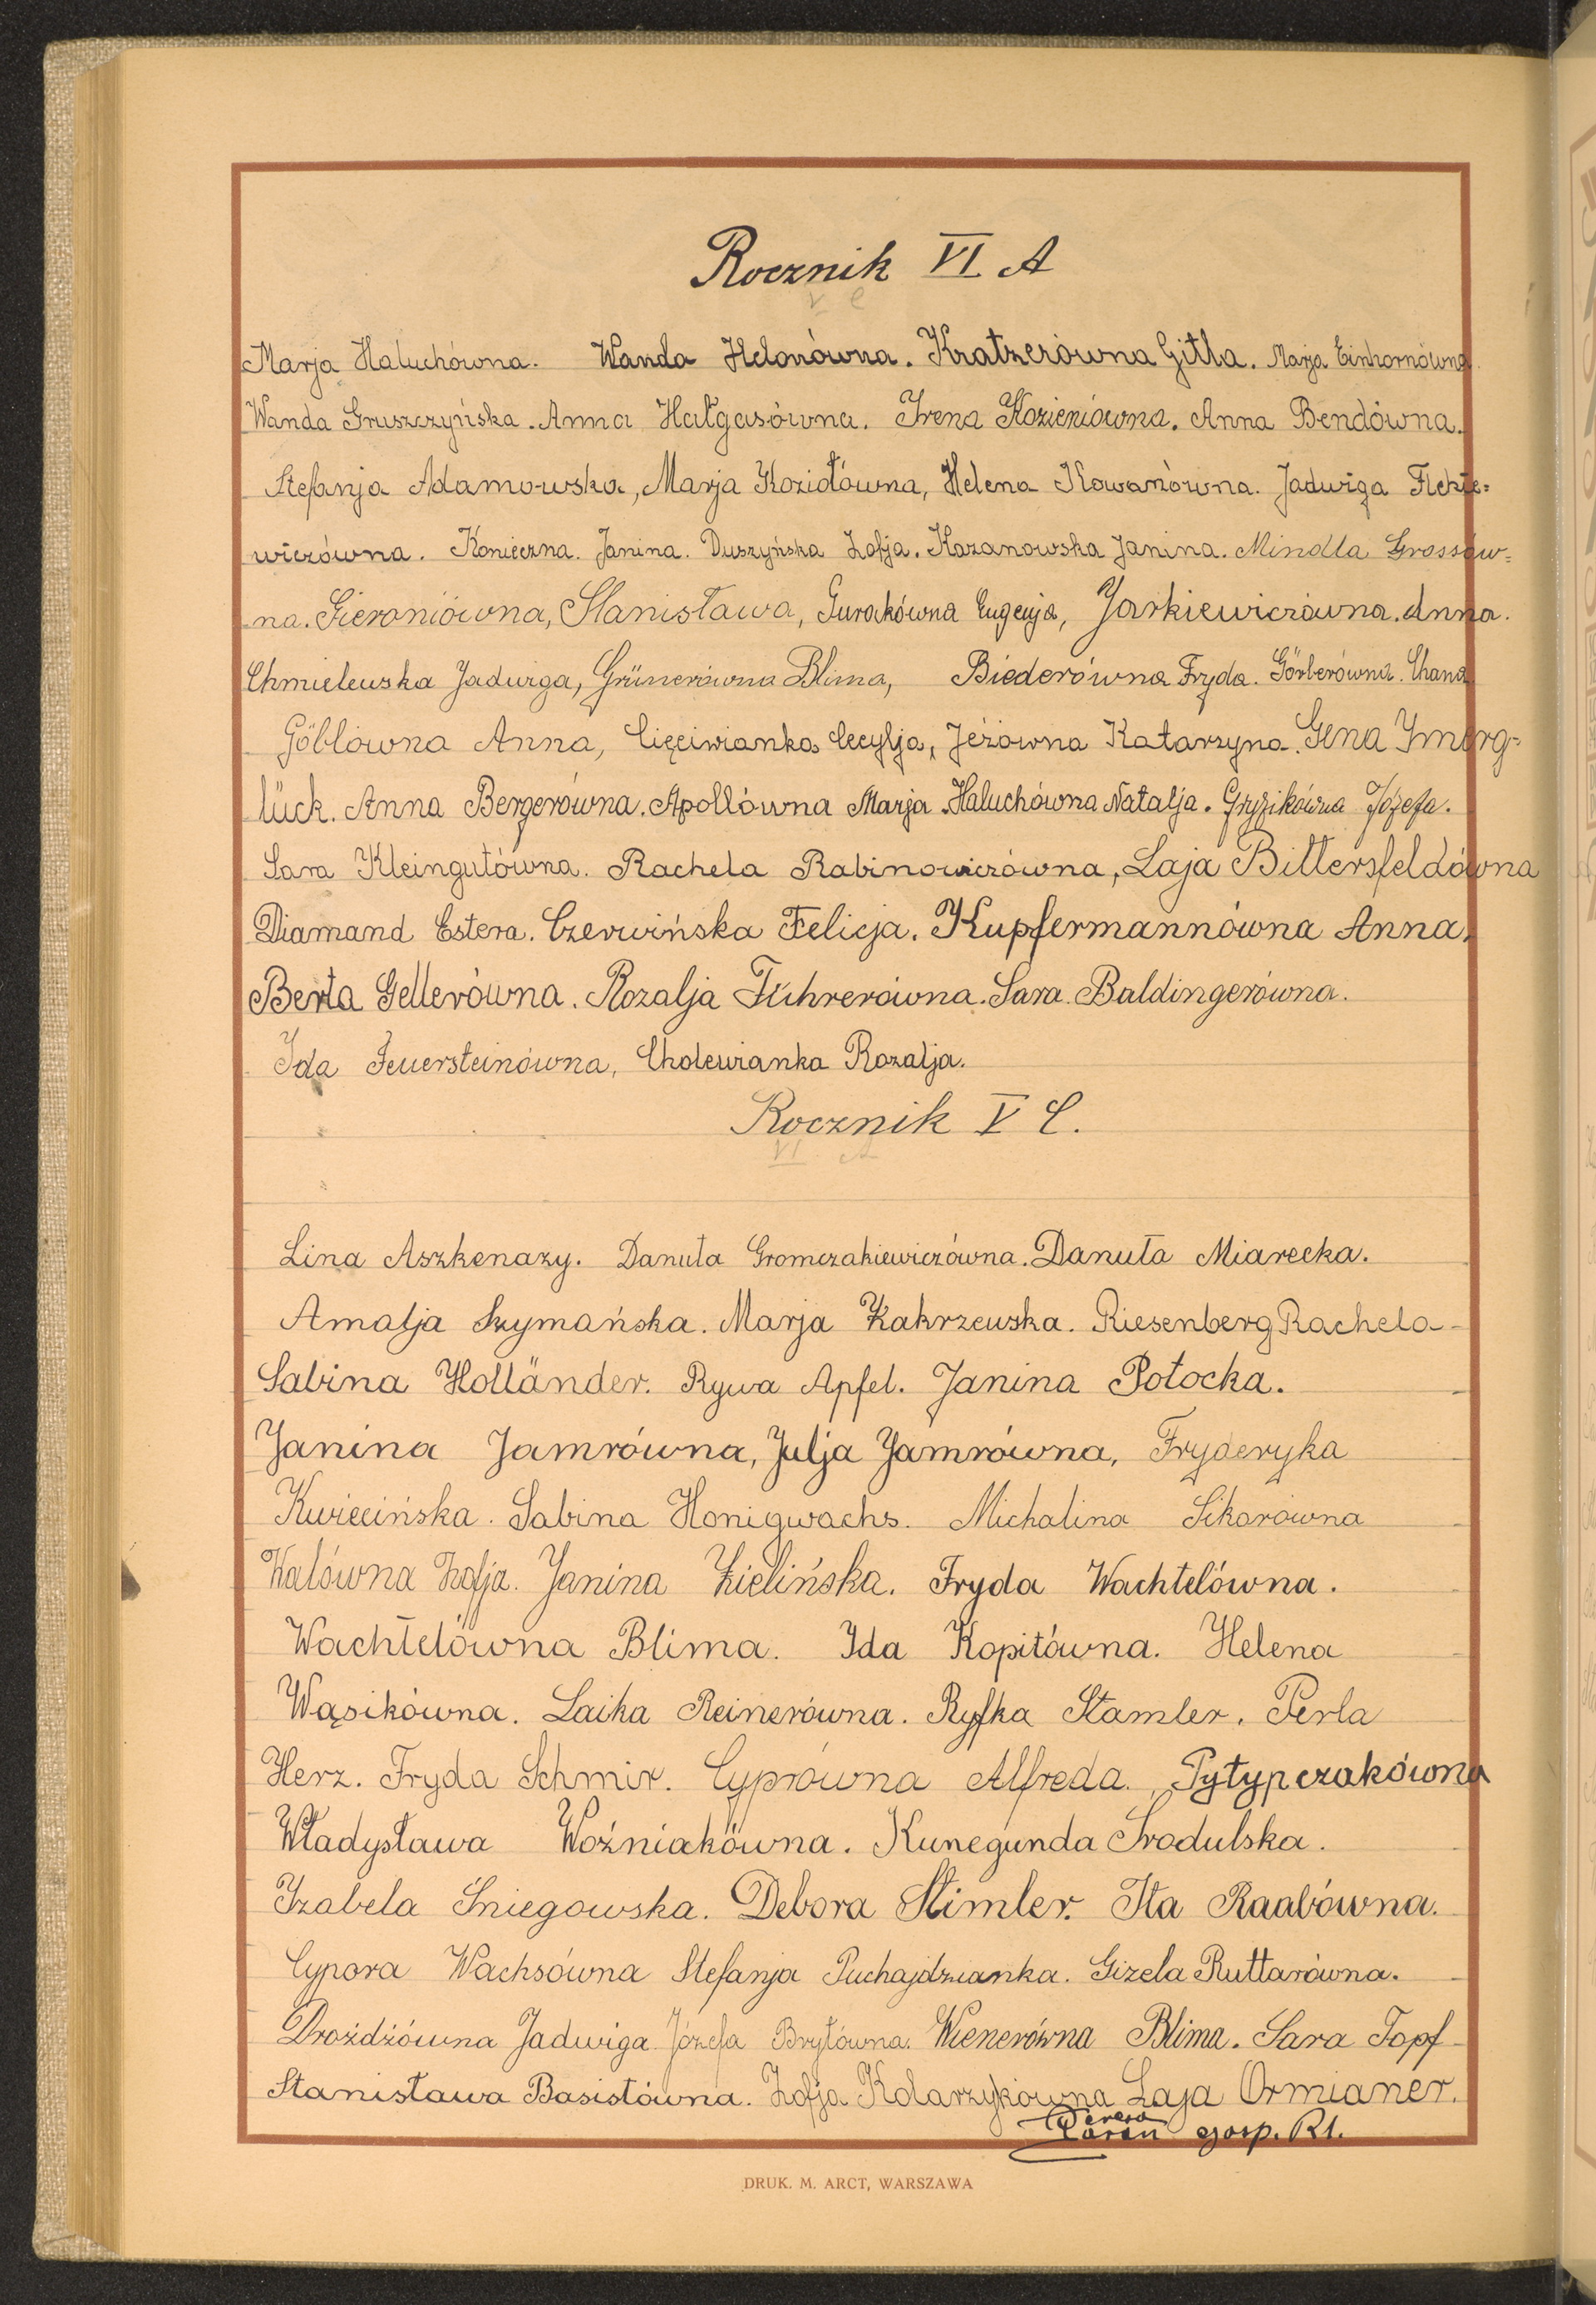 Rocznik VI A
V C
Marja Haluchówna. Wanda Helonówna. Kratzerówna Gitla. Marja Einhornówna
Wanda Gruszczyńska. Anna Hałgasówna. Irena Kozieniówna. Anna Bendówna.
Stefanja Adamowska, Marja Koziołówna, Helena Kowanówna. Jadwiga Fickie=
wiczówna. Konieczna. Janina. Duszyńska Zofja. Kazanowska Janina. Mindla Grossów=
na. Gieroniówna, Stanisława, Gurakówna Eugenja, Jarkiewiczówna. Anna.
Chmielewska Jadwiga, Grünerówna Blima, Biederówna Fryda. Görberówna. Chana
Göblówna Anna, Cięciwianka Cecylja, Jeżówna Katarzyna. Gena Imerg=
lück. Anna Bergerówna. Apollówna Marja. Haluchówna Natalja. Gryzikówna Józefa.
Sara Kleingutówna. Rachela Rabinowiczówna, Laja Bittersfeldówna
Diamand Estera. Czerwińska Felicja. Kupfermannówna Anna.
Berta Gellerówna. Rozalja Führerówna. Sara Baldingerówna.
Ida Feuersteinówna, Cholewianka Rozalja.
Rocznik V C.
VI A
Lina Aszkenazy. Danuta Gromczakiewiczówna. Danuta Miarecka.
Amalja Szymańska. Marja Zakrzewska. Riesenberg Rachela
Sabina Holländer. Rywa Apfel. Janina Potocka.
Janina Jamrówna, Julja Jamrówna, Fryderyka
Kwiecińska. Sabina Honigwachs. Michalina Sikorówna
Walówna Zofja. Janina Zielińska. Fryda Wachtelówna.
Wachtelówna Blima. Ida Kopitówna. Helena
Wąsikówna. Laika Reinerówna. Ryfka Stamler. Perla
Herz. Fryda Schmir. Cyprówna Alfreda. Pytypczakówna
Władysława Woźniakówna. Kunegunda Środulska.
Izabela Śniegowska. Debora Stimler. Ita Raabówna.
Cypora Wachsówna Stefanja Puchajdzianka. Gizela Ruttarówna.
Drożdżówna Jadwiga Józefa Bryłówna. Wienerówna Blima. Sara Topf
Stanisława Basistówna. Zofja Kolarzykówna Laja Ormianer.
gosp. Rl.
DRUK. M. ARCT, WARSZAWA